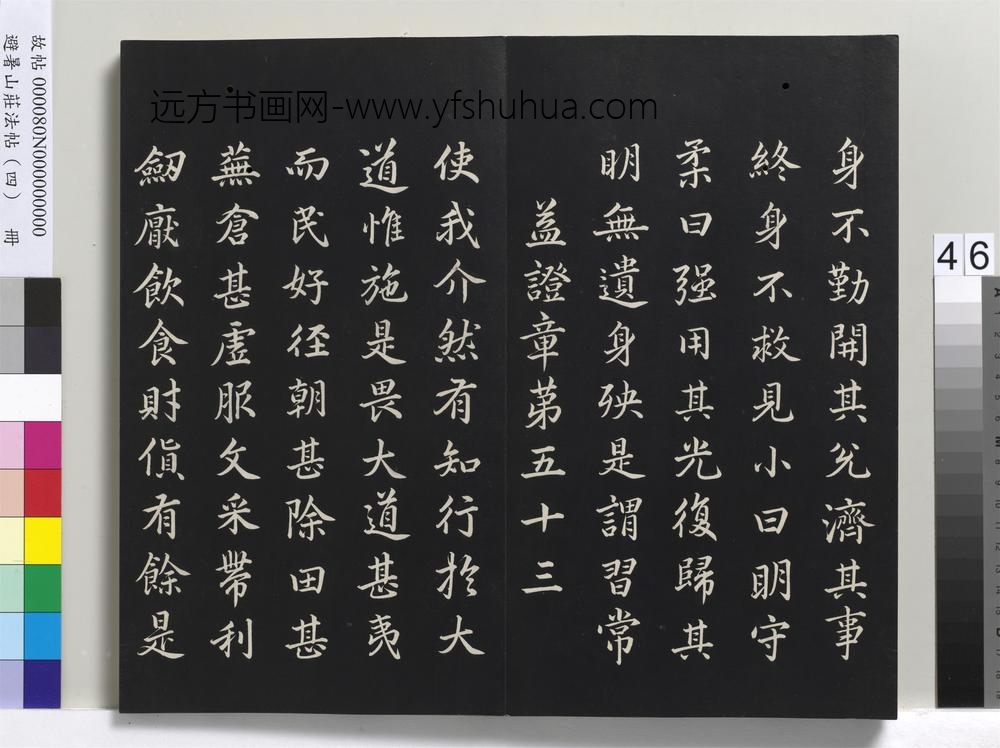 身不勤開其兌濟其事
終身不救見小曰明守
柔曰强用其光復歸其
明無遺身殃是謂習常
益證章第五十三
使我介然有知行於大
道惟施是畏大道甚夷
而民好徑朝甚除田甚
蕪倉甚虛服文采帶利
劒厭飲食財貨有餘是
远方书画网-www.yfshuhua.com
故帖000080N000000000
避暑山莊法帖(四) 冊
46